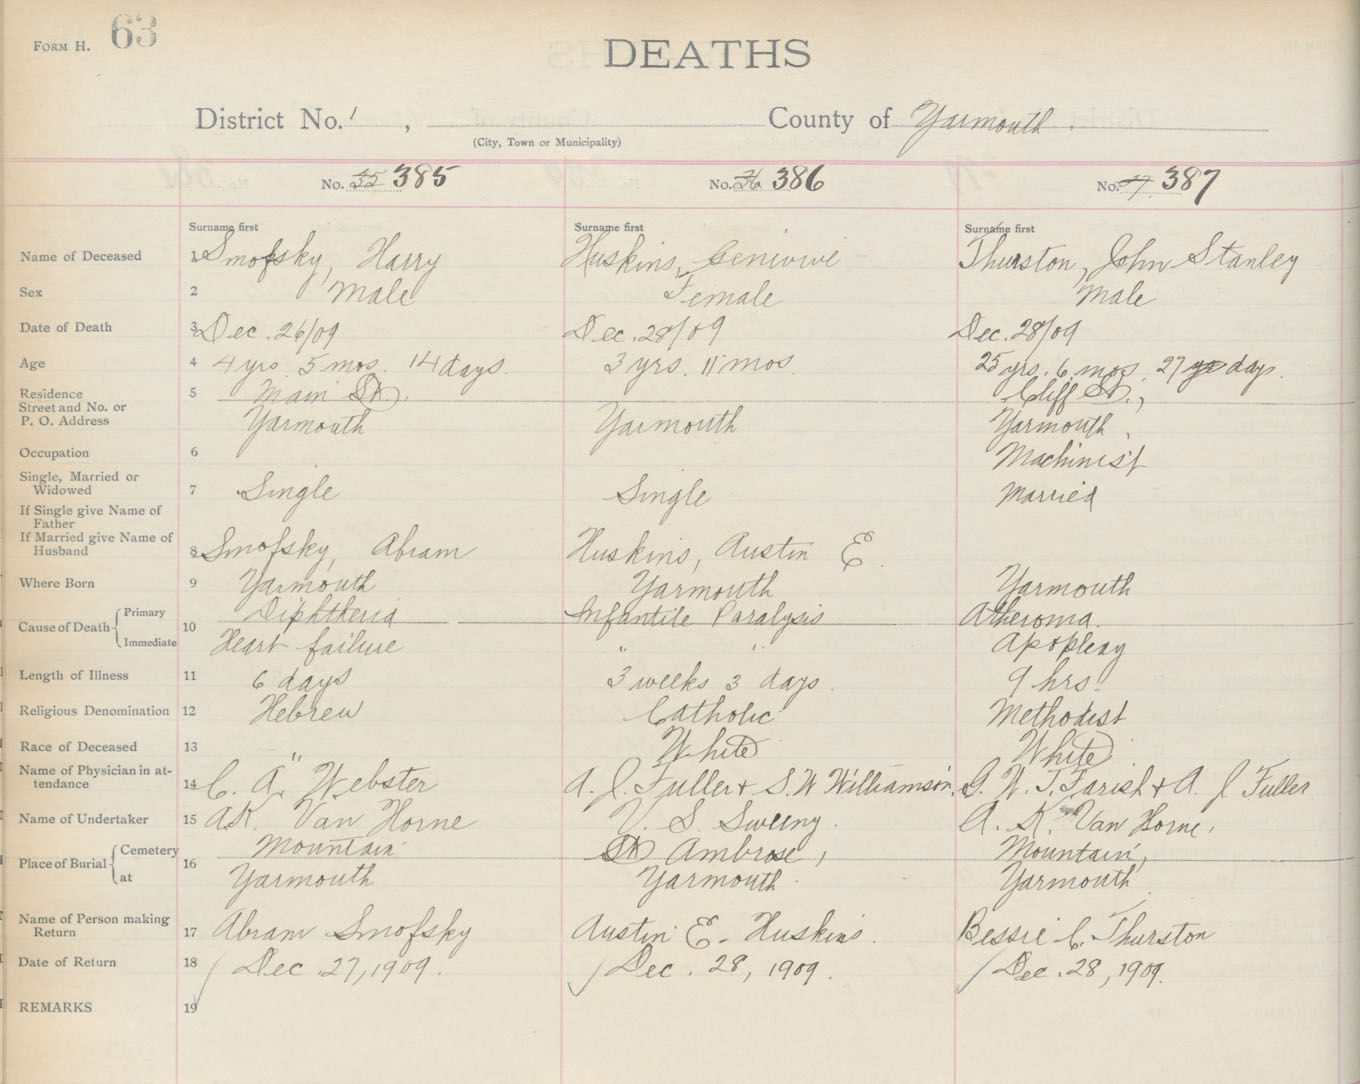 FORM H. 63
DEATHS
District No. 1 , County of Yarmouth.
(City, Town or Municipality)
No. 35 385 No. 36 386 No. 37 387
Surname first Surname first Surname first
Name of Deceased 1 Smofsky, Harry Huskins, Genivive Thurston, John Stanley
Sex 2 Male Female Male
Date of Death 3 Dec. 26/09 Dec. 28/09 Dec. 28/09
Age 4 4 yrs. 5 mos. 14 days. 3 yrs. 11 mos. 25 yrs. 6 mos. 27 days.
Residence 5 Main St. Cliff St.,
Street and No. or
P. O. Address Yarmouth Yarmouth Yarmouth,
Occupation 6 Machinist
Single, Married or
Widowed 7 Single Single Married
If Single give Name of
Father
If Married give Name of
Husband 8 Smofsky, Abram Huskins, Austin E.
Where Born 9 Yarmouth Yarmouth Yarmouth
Cause of Death Primary 10 Diphtheria Infantile Paralysis Atheroma.
Immediate Heart failure " " Apoplexy
Length of Illness 11 6 days 3 weeks 3 days. 9 hrs.
Religious Denomination 12 Hebrew Catholic Methodist
Race of Deceased 13 " White White
Name of Physician in at-
tendance 14 C. A. Webster A. J. Fuller & S. W Williamson. G. W. T. Farish & A. J. Fuller
Name of Undertaker 15 A.K. Van Horne V. S. Sweeny. A. K. Van Horne.
Place of Burial Cemetery 16 Mountain St Ambrose, Mountain,
at Yarmouth Yarmouth. Yarmouth
Name of Person making
Return 17 Abram Smofsky Austin E. Huskins. Bessie C. Thurston
Date of Return 18 Dec. 27, 1909. Dec. 28, 1909. Dec. 28, 1909.
REMARKS 19